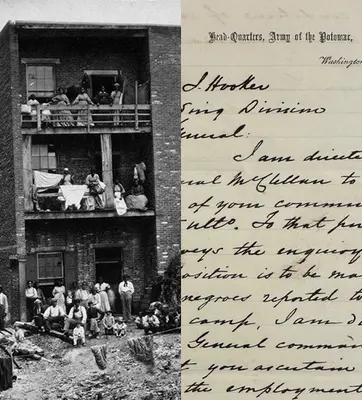 Head-Quarters, Army of the Potomac,
Washington
J. Hooker
ing Division
General:
I am direc
ral McClellan to
of your comman
ult. To that pu
veys the enquiry
position is to be ma
negroes reported t
camp, I am d
General comman
t you ascertain
the employment